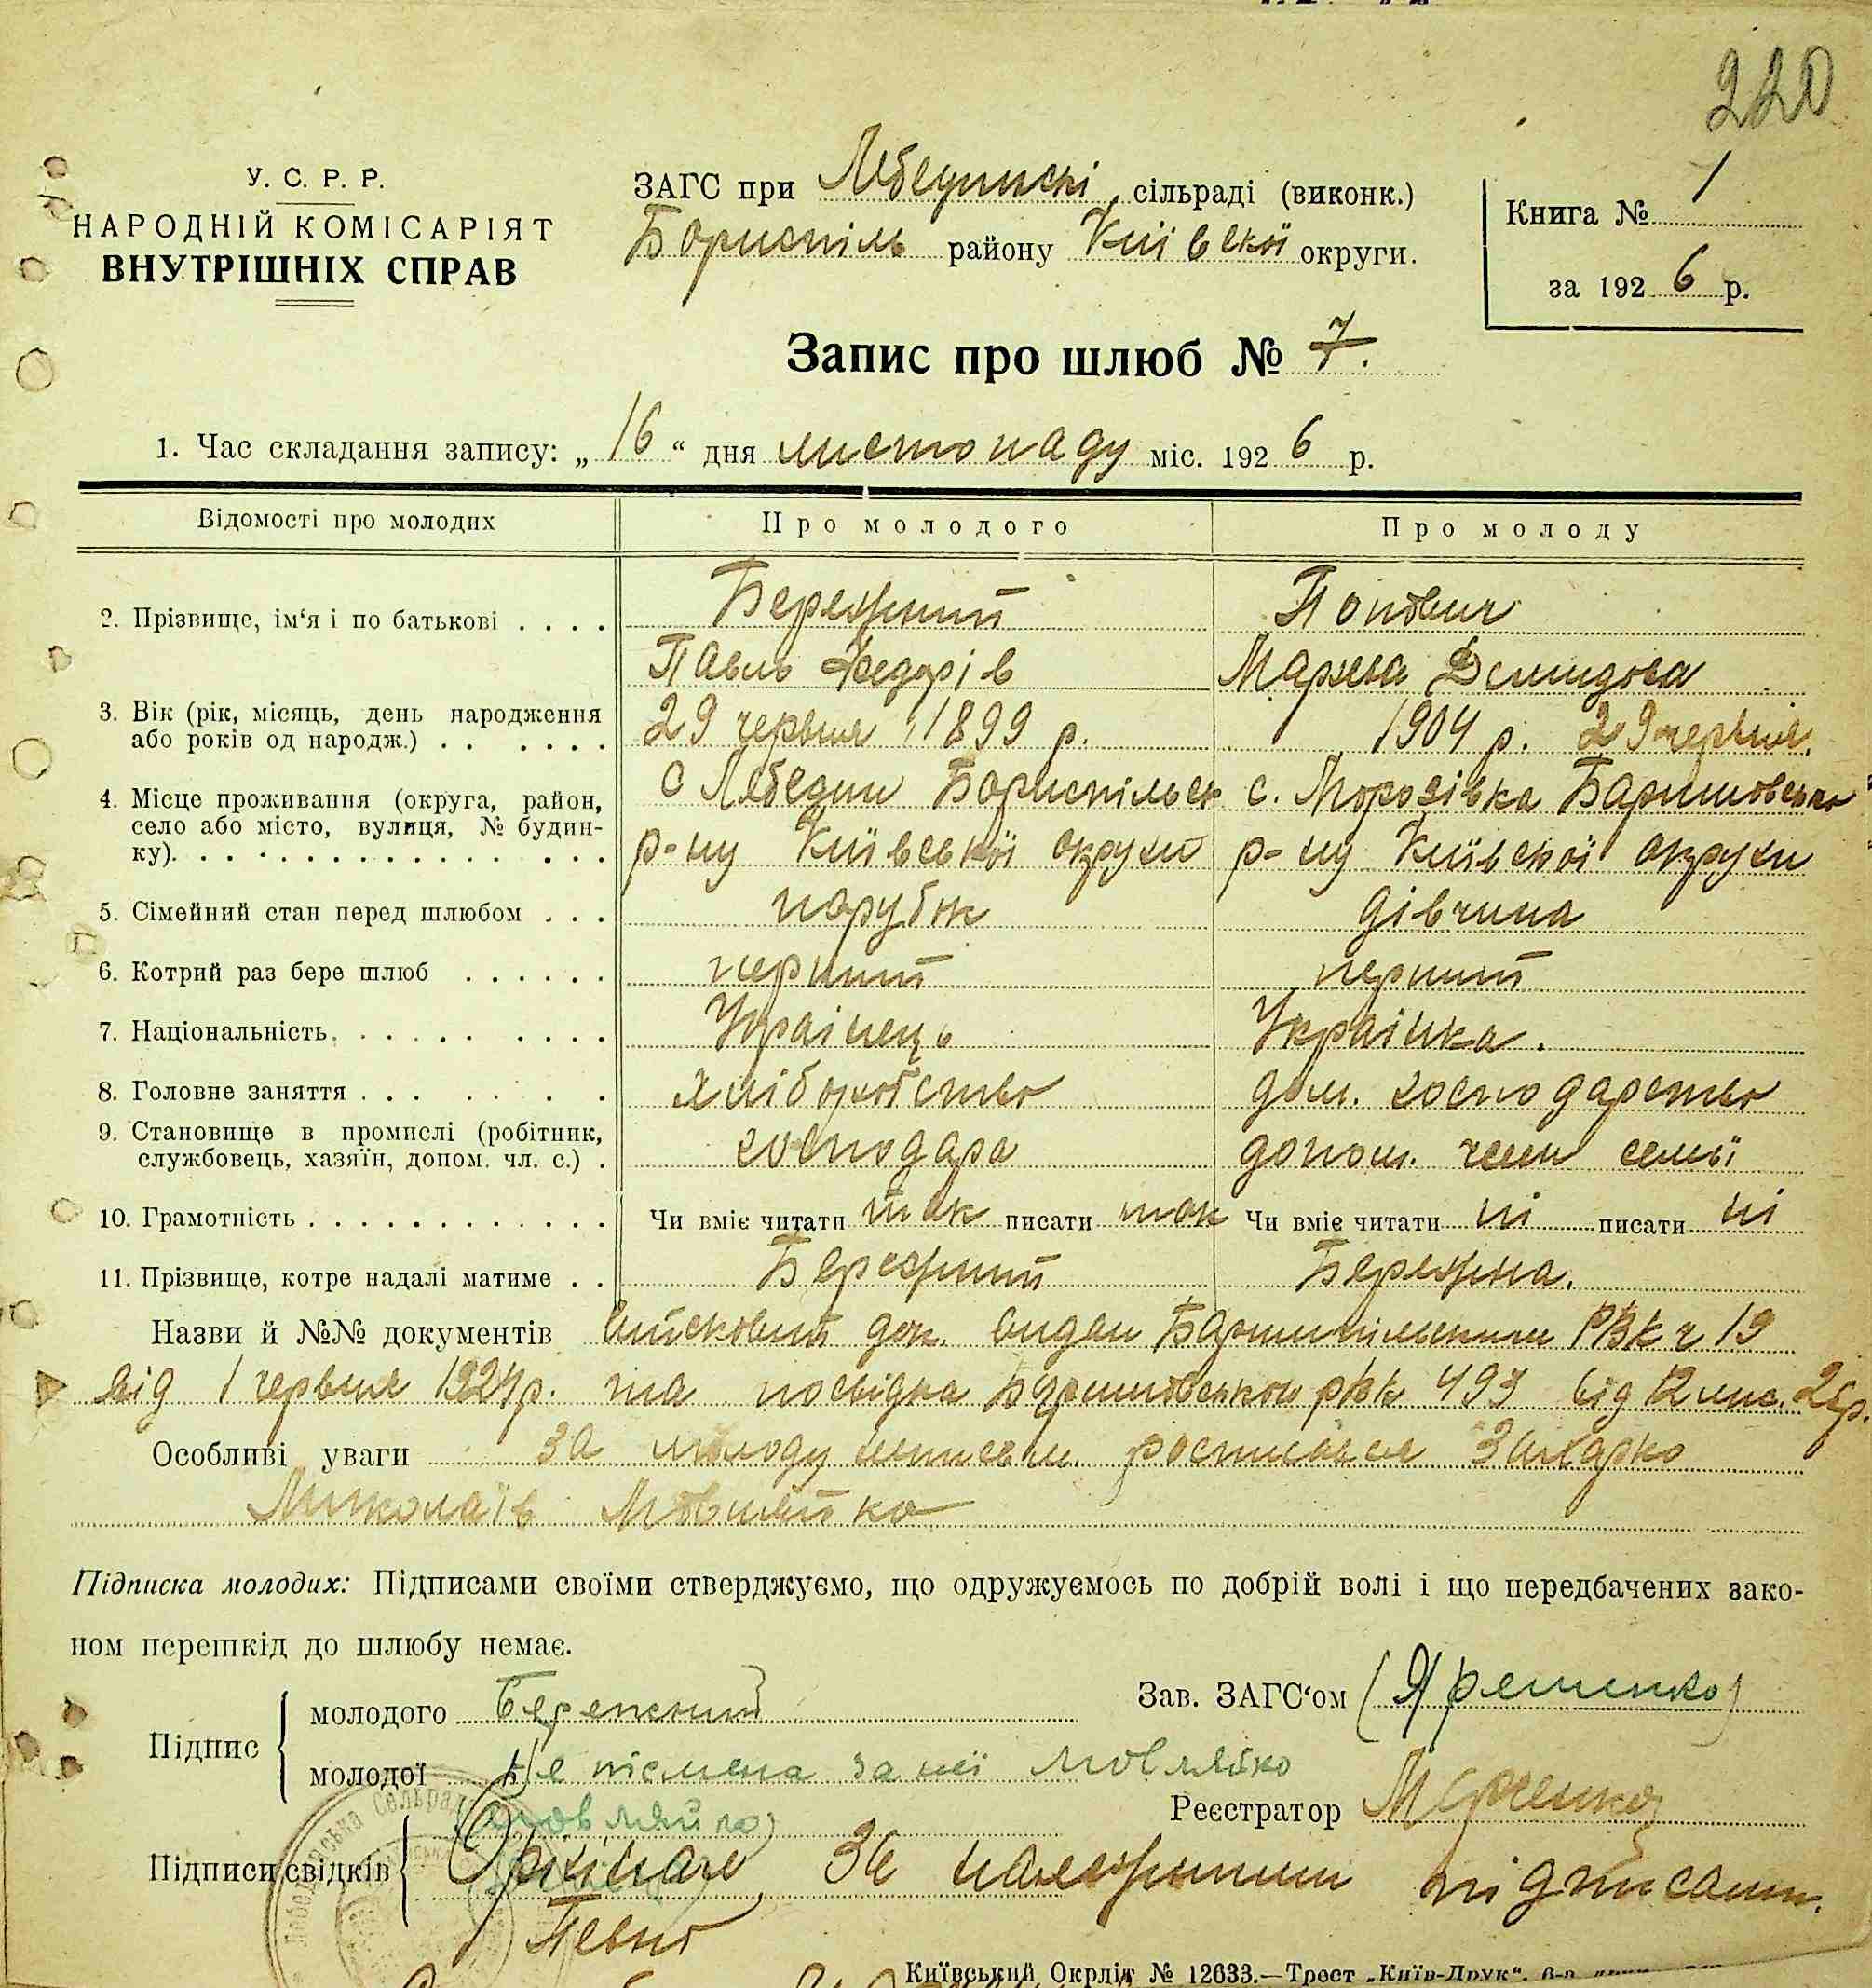 220
У. С. Р. Р.
НАРОДНІЙ КОМІСАРІЯТ
ВНУТРІШНІХ СПРАВ
ЗАГС при Лебединскі сільраді (виконк.)
Бориспіль району Київскої округи.
Книга № 1
за 1926 р.
Запис про шлюб № 7.
1. Час складання запису: „16“ дня листопаду міс. 1926 р.
Відомості про молодих Про молодого Про молоду
2. Прізвище, ім‘я і по батькові . . . . Бережний Попович
Павло Федорів Марина Демидова
3. Вік (рік, місяць, день народження або років од народж.) . . . . . . 29 червня 1899 р. 1904 р. 29 червня.
4. Місце проживання (округа, район, село або місто, вулиця, № будинку). . . . с Лебедин Бориспільск р-ну Київської округи с. Морозівка Баришовсько р-ну Київскої округи
5. Сімейний стан перед шлюбом . . . парубок дівчина
6. Котрий раз бере шлюб . . . . . . перший перший
7. Національність. . . . . . . . . . Українець Українка.
8. Головне заняття . . . . . . . хліборобство дом. господарство
9. Становище в промислі (робітник, службовець, хазяїн, допом. чл. с.) . господара допом. член семьї
10. Грамотність . . . . . . . . . . . . . Чи вміє читати так писати так Чи вміє читати ні писати ні
11. Прізвище, котре надалі матиме . . Бережний Бережна.
Назви й №№ документів док. видан РВК ч 19
від 1 червня 1924р. та посвідка 493 від 12 лис. 26р.
Особливі уваги за молоду росписався
Миколаїв Мовляйко
Підписка молодих: Підписами своїми стверджуємо, що одружуємось по добрій волі і що передбачених зако-
ном перешкід до шлюбу немає.
Підпис
молодого Бережний
Зав. ЗАГС‘ом (Яременко)
молодої Не пісмена за неї Мовляйко
(Мовляйко)
Реєстратор
Підписи свідків
Орігінал за належними підписами.
Певно
Київський Окрліт № 12633.—Трест „Київ-Друк“.